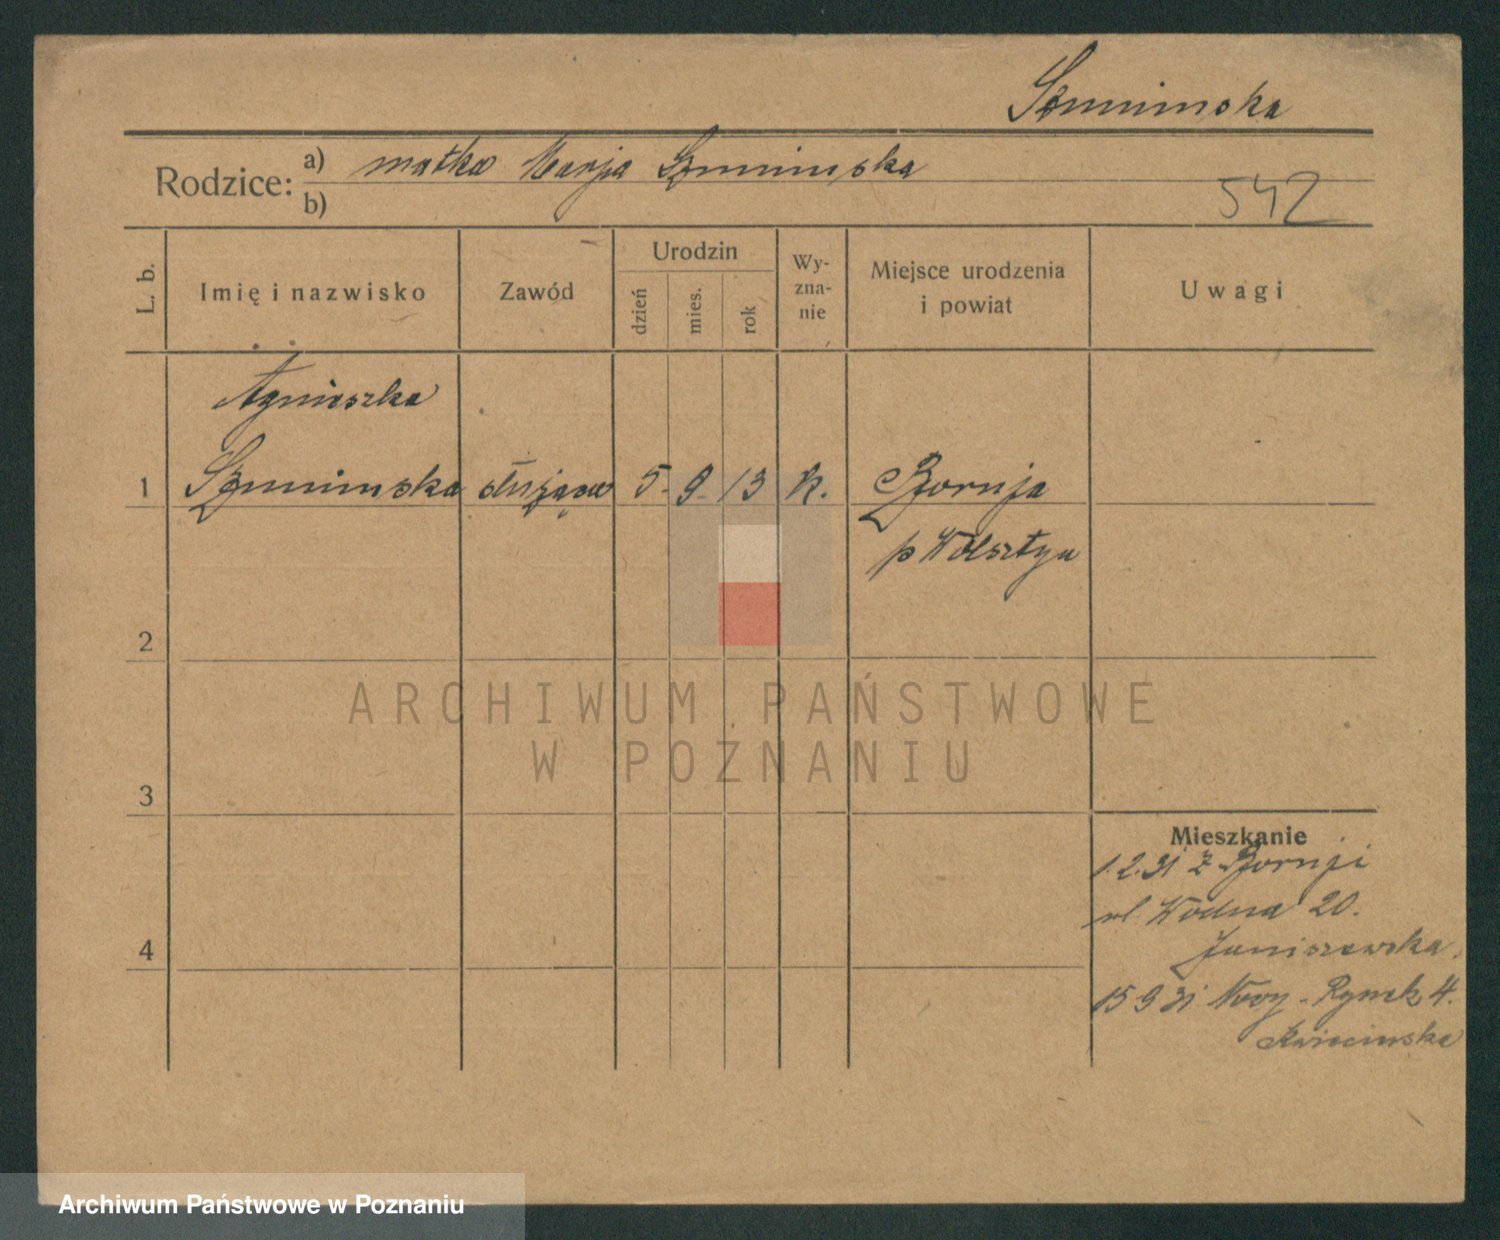 Szmimska
Rodzice: a) matka Marja Szmimska
b)
542
L. b.
Imię i nazwisko
Zawód
Urodzin
dzień
mies.
rok
Wy-
zna-
nie
Miejsce urodzenia
i powiat
Uwagi
Agnieszka
1 Szmimska służąca 5. 9. 13 k.
p Wolsztyn
2
ARCHIWUM PAŃSTWOWE
W POZNANIU
3
Mieszkanie
1.2.31 z
ul. Wodna 20.
Janiszewska.
4
15 9 31 Nowy-Rynek 4.
Kwiecinska
Archiwum Państwowe w Poznaniu